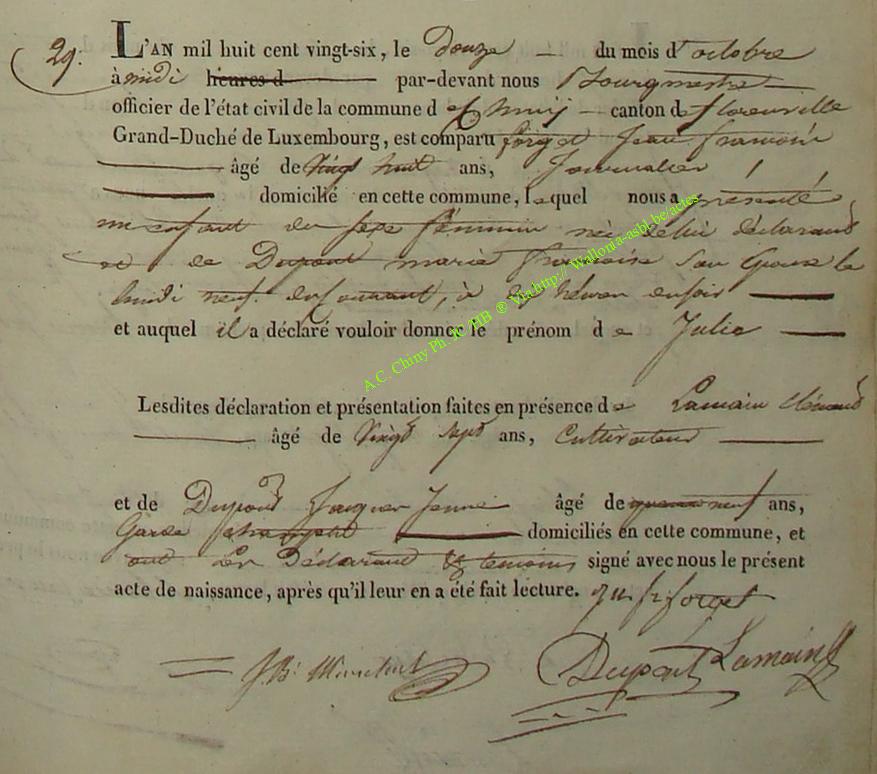 29.
L'AN mil huit cent vingt-six, le Douze — du mois d'octobre
à midi heures d par-devant nous Bourgmestre
officier de l'état civil de la commune d — canton de florenville
Grand-Duché de Luxembourg, est comparu forget Jean francois
âgé de vingt huit ans, Journalier
domicilié en cette commune, lequel nous a présenté
un enfant du sexe féminin née de lui déclarant
et de Dupont marie francoise Son Epouse le
lundi neuf du Courant, à heures du soir
et auquel il a déclaré vouloir donner le prénom de Julie
Lesdites déclaration et présentation faites en présence de Lamain
âgé de vingt sept ans, Cultivateur
et de Dupont Jacques Jeune âgé de ans,
Garde champetre domiciliés en cette commune, et
ont Les Déclarant & temoins signé avec nous le présent
acte de naissance, après qu'il leur en a été fait lecture. forget
Dupont Lamain
A.C. Chiny Ph. JC/HB ® Via http://Wallonia-asbl.be/actes